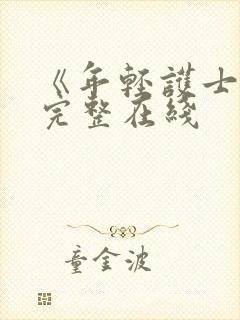 《年轻護士
完整在綫
童金波